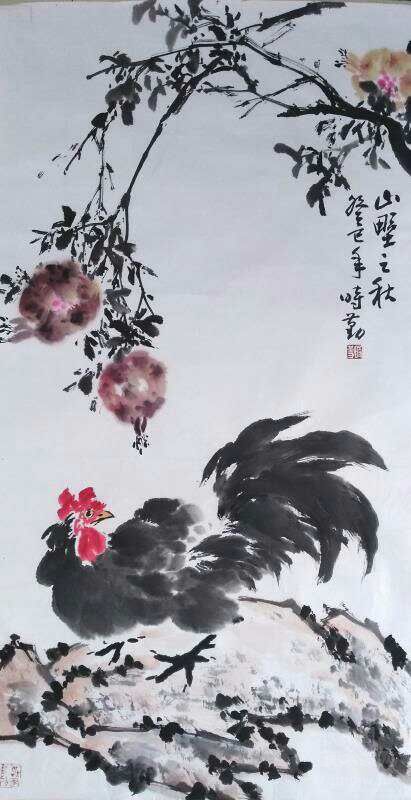 山野之秋
癸巳年时勤